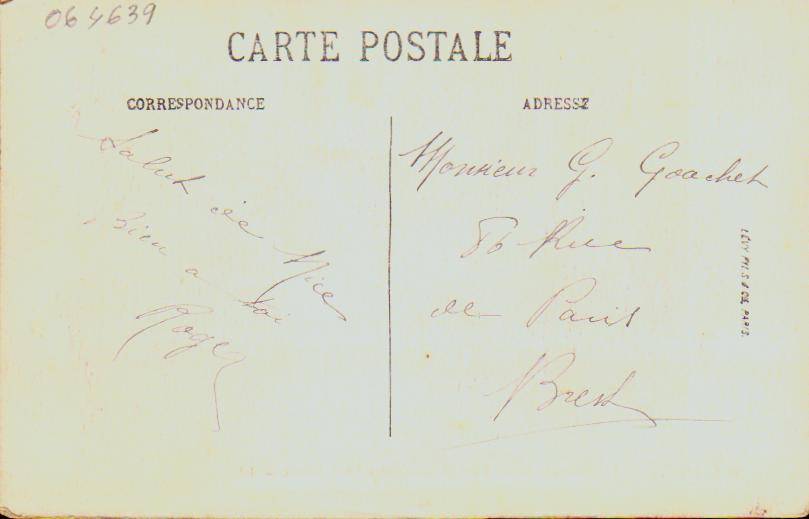 064639
CARTE POSTALE
CORRESPONDANCE
Salut de Nice
Bien a toi
Roger
ADRESSE
Monsieur G. Goachet
86 Rue
de Paris
Brest
LÉVY FILS & CIE, PARIS.